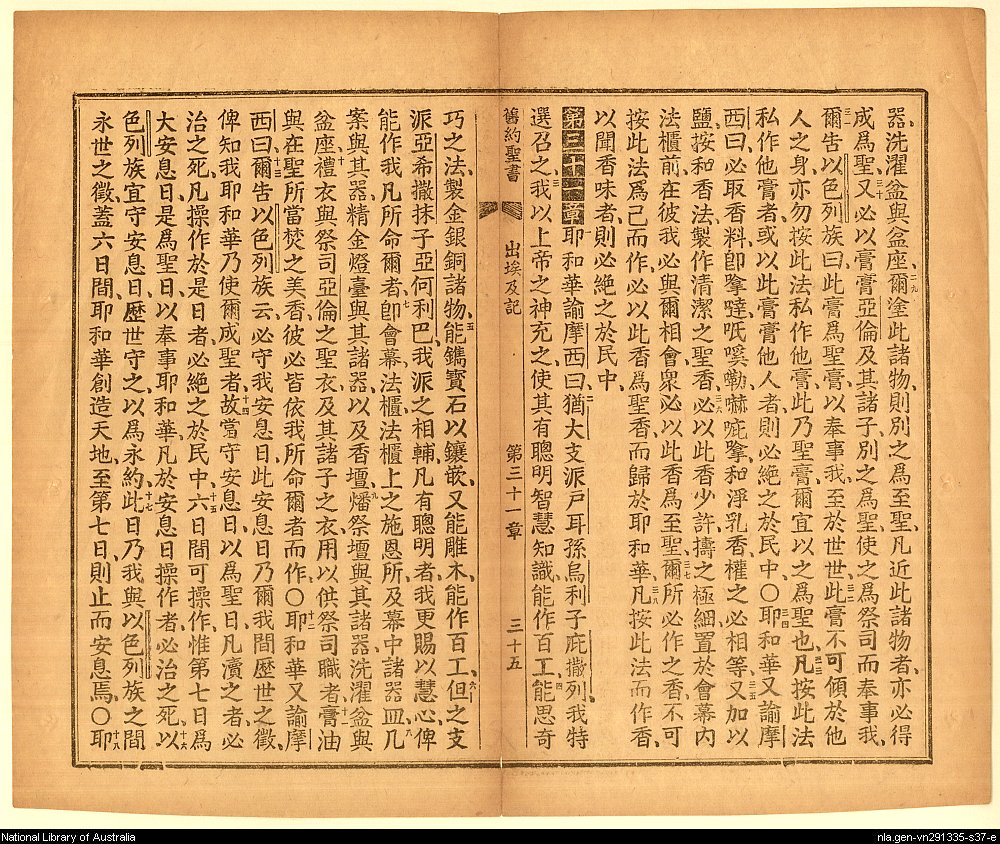 器洗濯盆與盆座爾塗此諸物則別之爲至聖凡近此諸物者亦必得
二九
成爲聖又必以膏膏亞倫及其諸子別之爲聖使之爲祭司而奉事我
三十
爾告以色列族曰此膏爲聖膏以奉事我至於世世此膏不可傾於他
三一 三二
人之身亦勿按此法私作他膏此乃聖膏爾宜以之爲聖也凡按此法
三三
私作他膏者或以此膏膏他人者則必絕之於民中〇耶和華又諭摩
三四
西曰必取香料卽拏噠呧嘰嘞嚇㕸拏和淨乳香權之必相等又加以
三五
鹽按和香法製作清潔之聖香必以此香少許擣之極細置於會幕內
三六
法櫃前在彼我必與爾相會衆必以此香爲至聖爾所必作之香不可
三七
按此法爲己而作必以此香爲聖香而歸於耶和華凡按此法而作香
三八
以聞香味者則必絕之於民中
第三十一章耶和華諭摩西曰猶大支派戸耳孫烏利子庇撒列我特
二
選召之我以上帝之神充之使其有聰明智慧知識能作百工能思奇
三 四
舊約聖書 出埃及記 第三十一章 三十五
巧之法製金銀銅諸物能鐫寳石以鑲嵌又能雕木能作百工但之支
五 六
派亞希撒抹子亞何利巴我派之相輔凡有聰明者我更賜以慧心俾
能作我凡所命爾者卽會幕法櫃法櫃上之施恩所及幕中諸器皿几
七 八
案與其器精金燈臺與其諸器以及香壇燔祭壇與其諸器洗濯盆與
九
盆座禮衣與祭司亞倫之聖衣及其諸子之衣用以供祭司職者膏油
十 十一
與在聖所當焚之美香彼必皆依我所命爾者而作〇耶和華又諭摩
十二
西曰爾告以色列族云必守我安息日此安息日乃爾我間歷世之徵
十三
俾知我耶和華乃使爾成聖者故當守安息日以爲聖日凡瀆之者必
十四
治之死凡操作於是日者必絕之於民中六日間可操作惟第七日爲
十五
大安息日是爲聖日以奉事耶和華凡於安息日操作者必治之死以
十六
色列族宜守安息日歷世守之以爲永約此日乃我與以色列族之間
十七
永世之徵蓋六日間耶和華創造天地至第七日則止而安息焉〇耶
十八
National Library of Australia
nla.gen-vn291335-s37-e